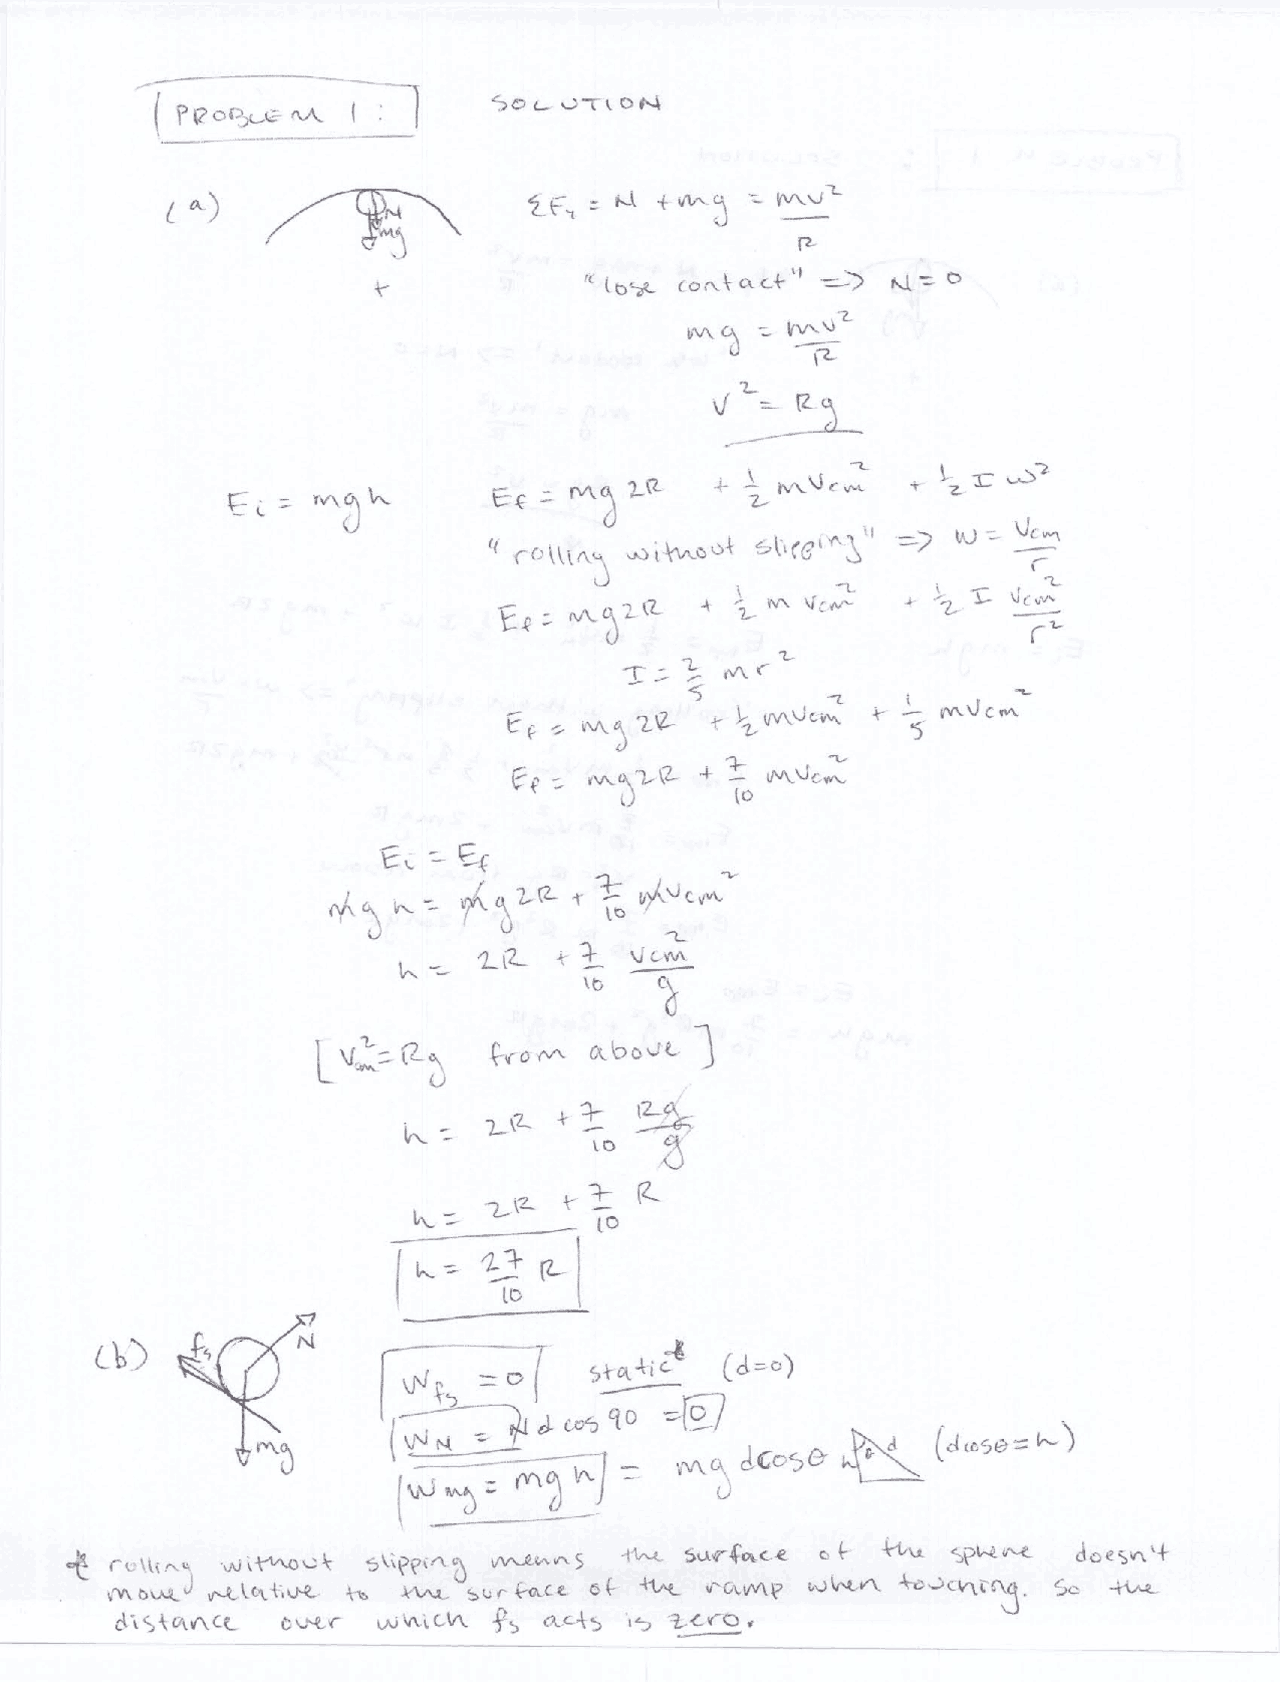 PROBLEM 1: SOLUTION
(a) N mg + ΣFy = N + mg = mv²/R
"lose contact" => N = 0
mg = mv²/R
v² = Rg
Ei = mgh Ef = mg2R + 1/2 mVcm² + 1/2 I w²
"rolling without slipping" => w = Vcm/r
Ef = mg2R + 1/2 m Vcm² + 1/2 I Vcm²/r²
I = 2/5 mr²
Ef = mg2R + 1/2 mVcm² + 1/5 mVcm²
Ef = mg2R + 7/10 mVcm²
Ei = Ef
mgh = mg2R + 7/10 mVcm²
h = 2R + 7/10 Vcm²/g
[Vcm² = Rg from above]
h = 2R + 7/10 Rg/g
h = 2R + 7/10 R
h = 27/10 R
(b) fs N mg Wfs = 0 static* (d=0)
WN = N d cos 90 = 0
Wmg = mgh = mg dcosθ h θ d (dcosθ = h)
* rolling without slipping means the surface of the sphere doesn't
move relative to the surface of the ramp when touching. So the
distance over which fs acts is zero.